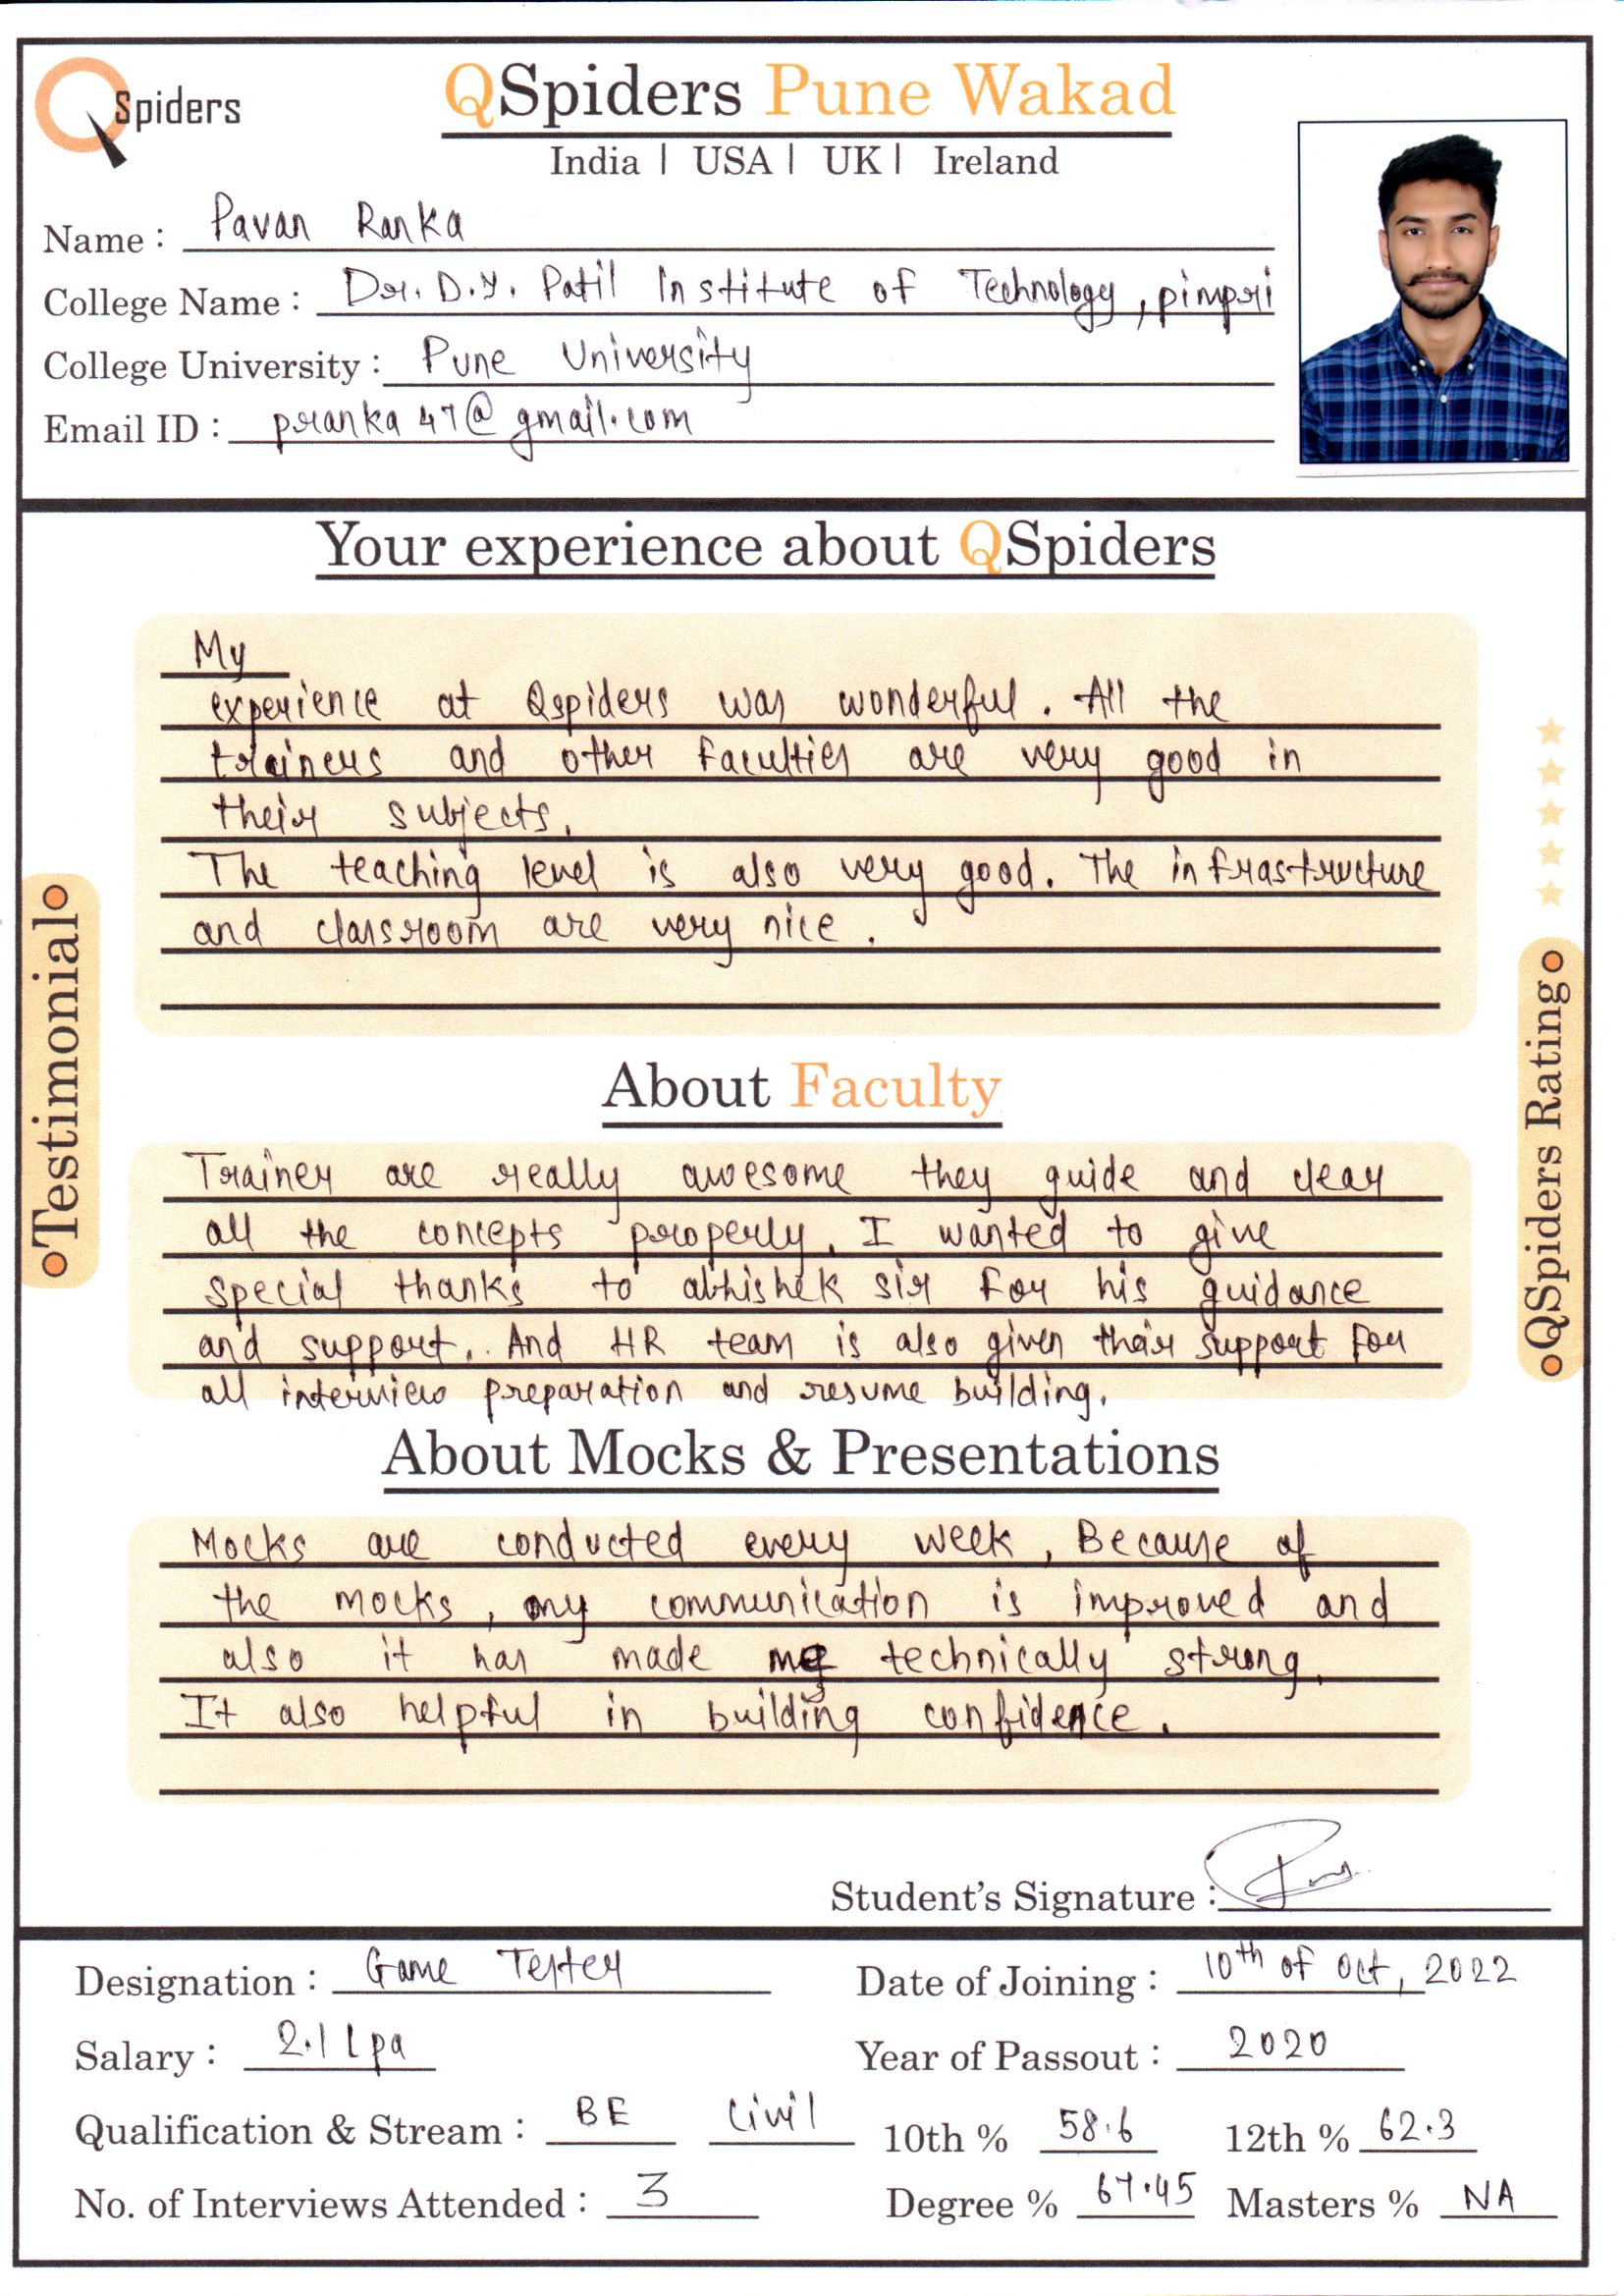 QSpiders
QSpiders Pune Wakad
India | USA | UK | Ireland
Name : Pavan Ranka
College Name : Dr. D.Y. Patil Institute of Technology, pimpri
College University : Pune University
Email ID : pranka47@gmail.com
Your experience about QSpiders
My
experience at Qspiders was wonderful. All the
trainers and other faculties are very good in
their subjects.
The teaching level is also very good. The infrastructure
and classroom are very nice.
Testimonial
QSpiders Rating
About Faculty
Trainer are really awesome they guide and clear
all the concepts properly. I wanted to give
special thanks to abhishek sir for his guidance
and support. And HR team is also given their support for
all interview preparation and resume building.
About Mocks & Presentations
Mocks are conducted every week, Because of
the mocks, my communication is improved and
also it has made me technically strong.
It also helpful in building confidence.
Student's Signature :
Designation : Game Tester Date of Joining : 10th of Oct, 2022
Salary : 2.1 Lpa Year of Passout : 2020
Qualification & Stream : BE Civil 10th % 58.6 12th % 62.3
No. of Interviews Attended : 3 Degree % 67.45 Masters % NA